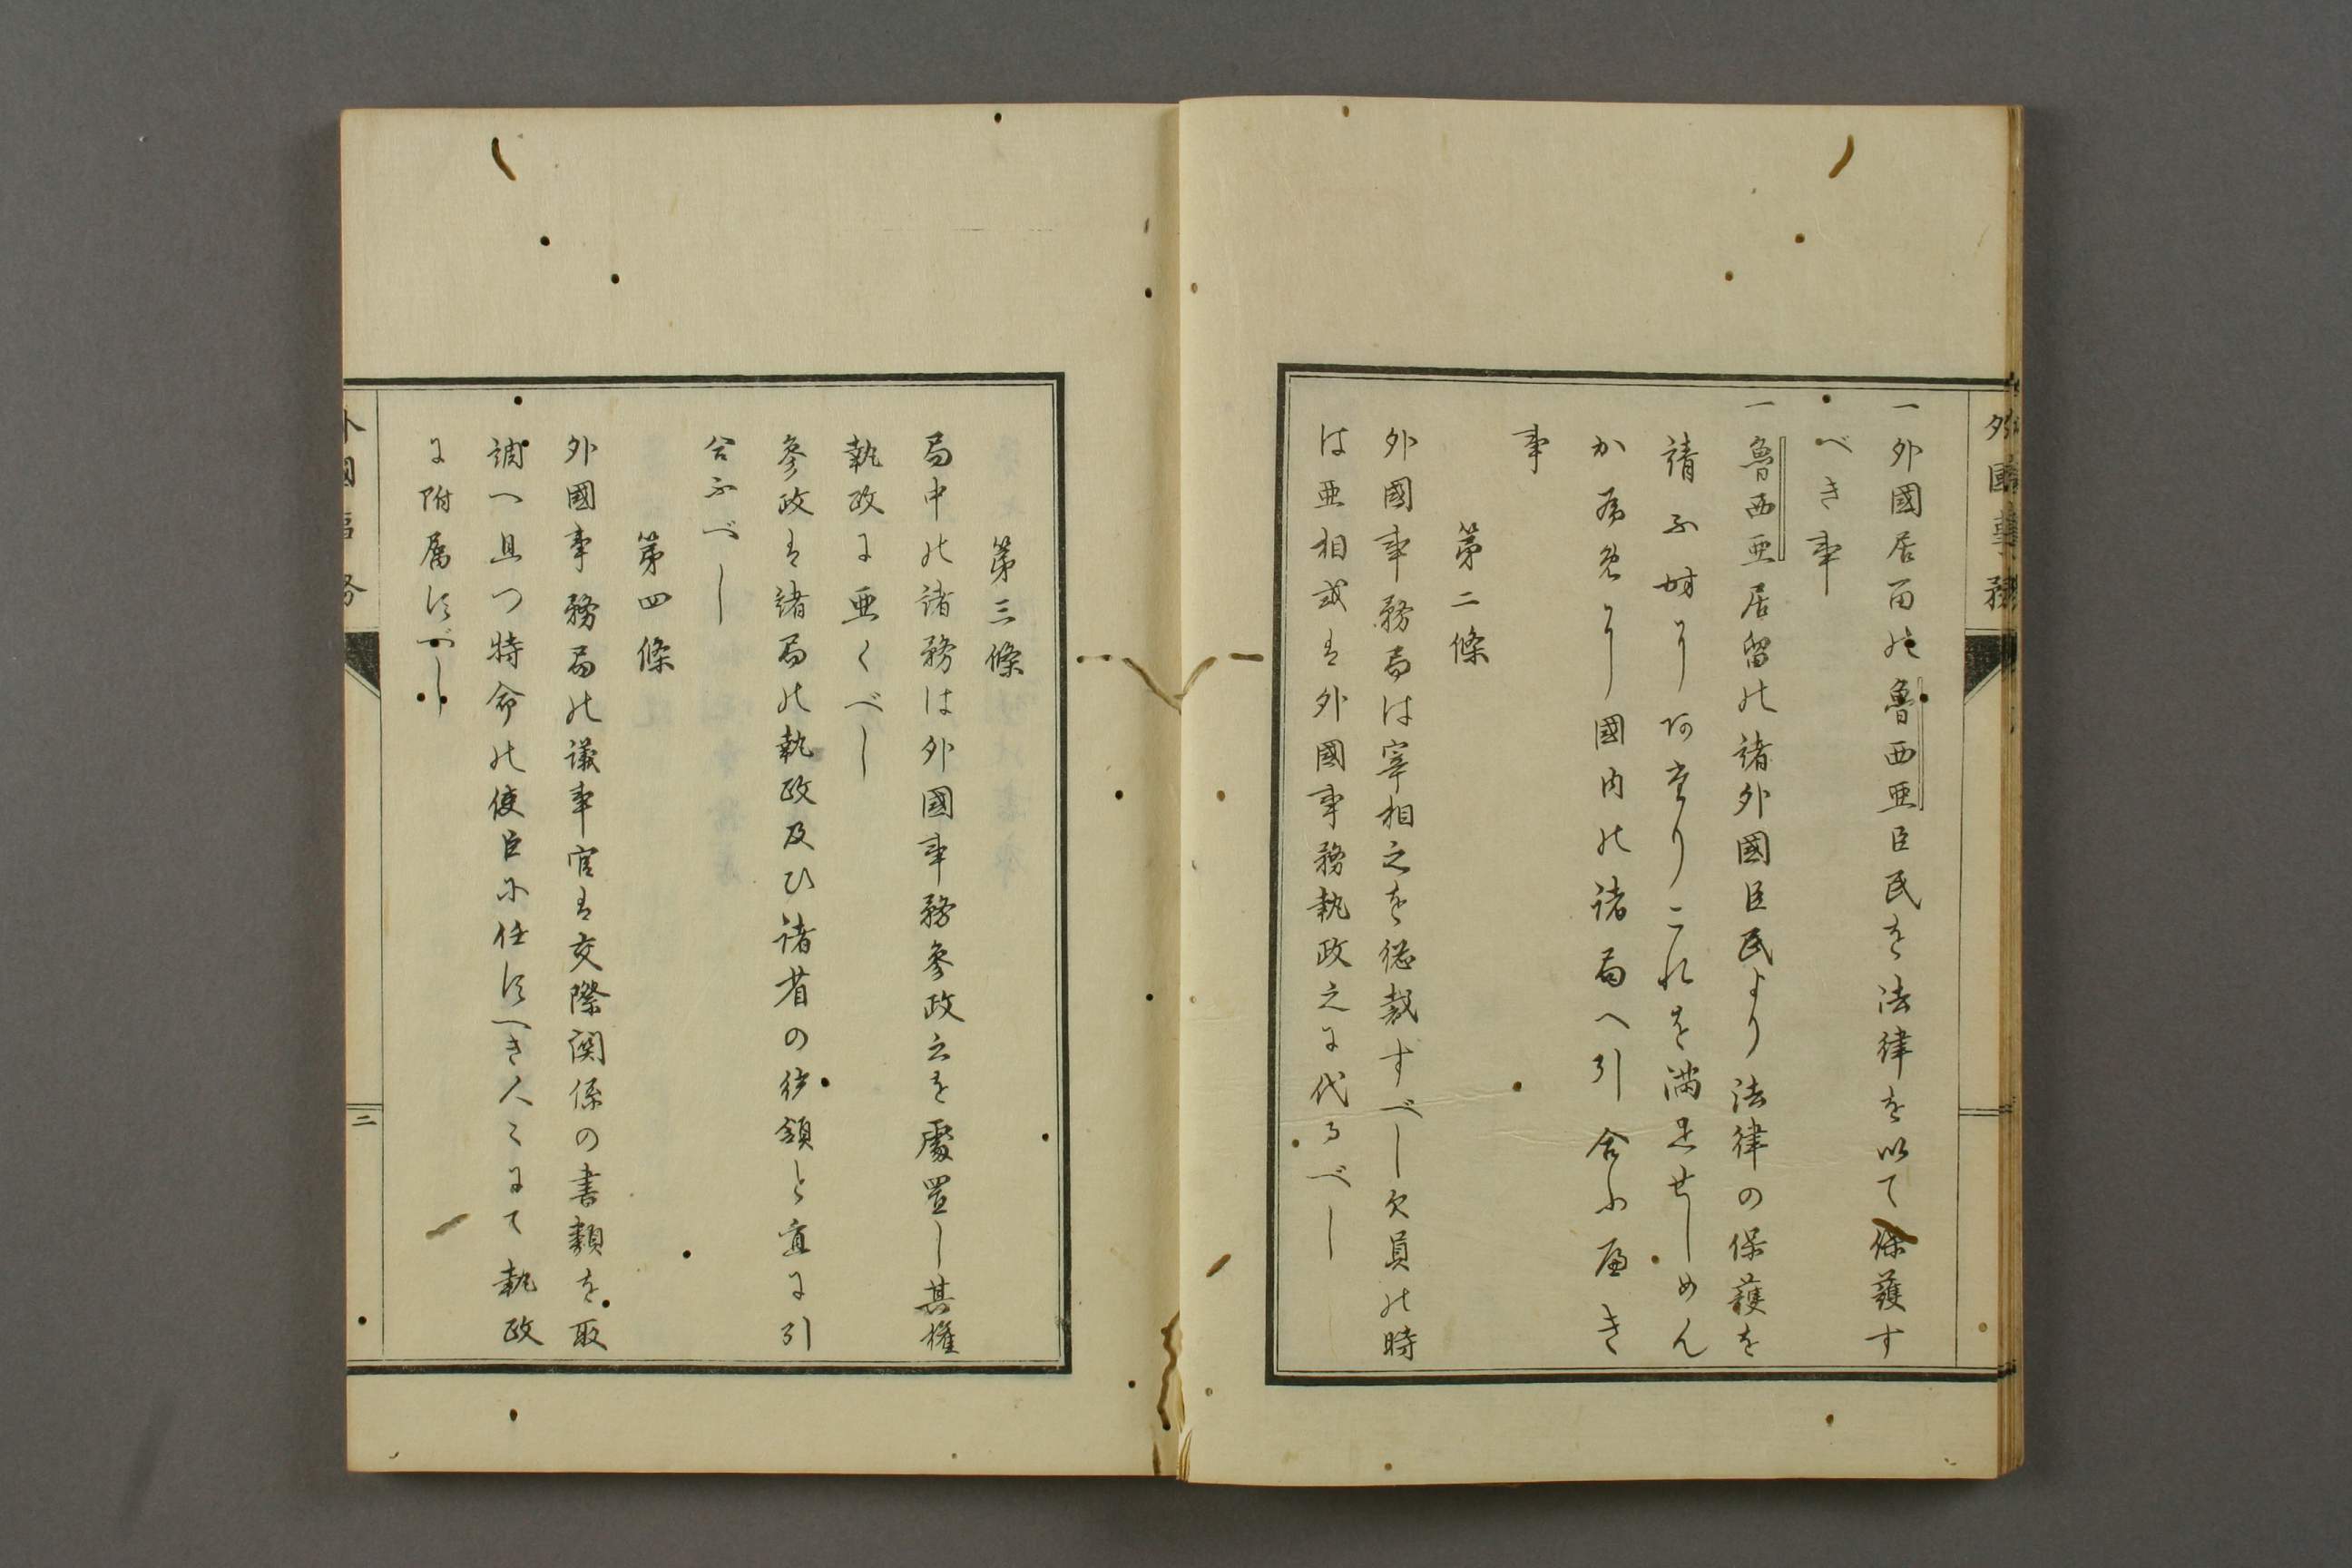 外國事務
一外國居畄の魯西亜臣民を法律を以て保護す
べき事
一魯西亜居留の諸外國臣民より法律の保護を
請ふ時り阿らりこれを満足せしめん
か為免り國内の諸局へ引合ふ屋き
事
第二條
外國事務局は宰相之を総裁すべし欠員の時
は亜相或は外國事務執政之に代るべし
第三條
局中の諸務は外國事務参政之を處置し其權
執政に亜くべし
参政は諸局の執政及ひ諸省の頭領と直に引
合ふべし
第四條
外國事務局の議事官は交際関係の書類を取
調へ且つ特命の使臣に任すへき人々にて執政
に附属すべし
外國事務
二